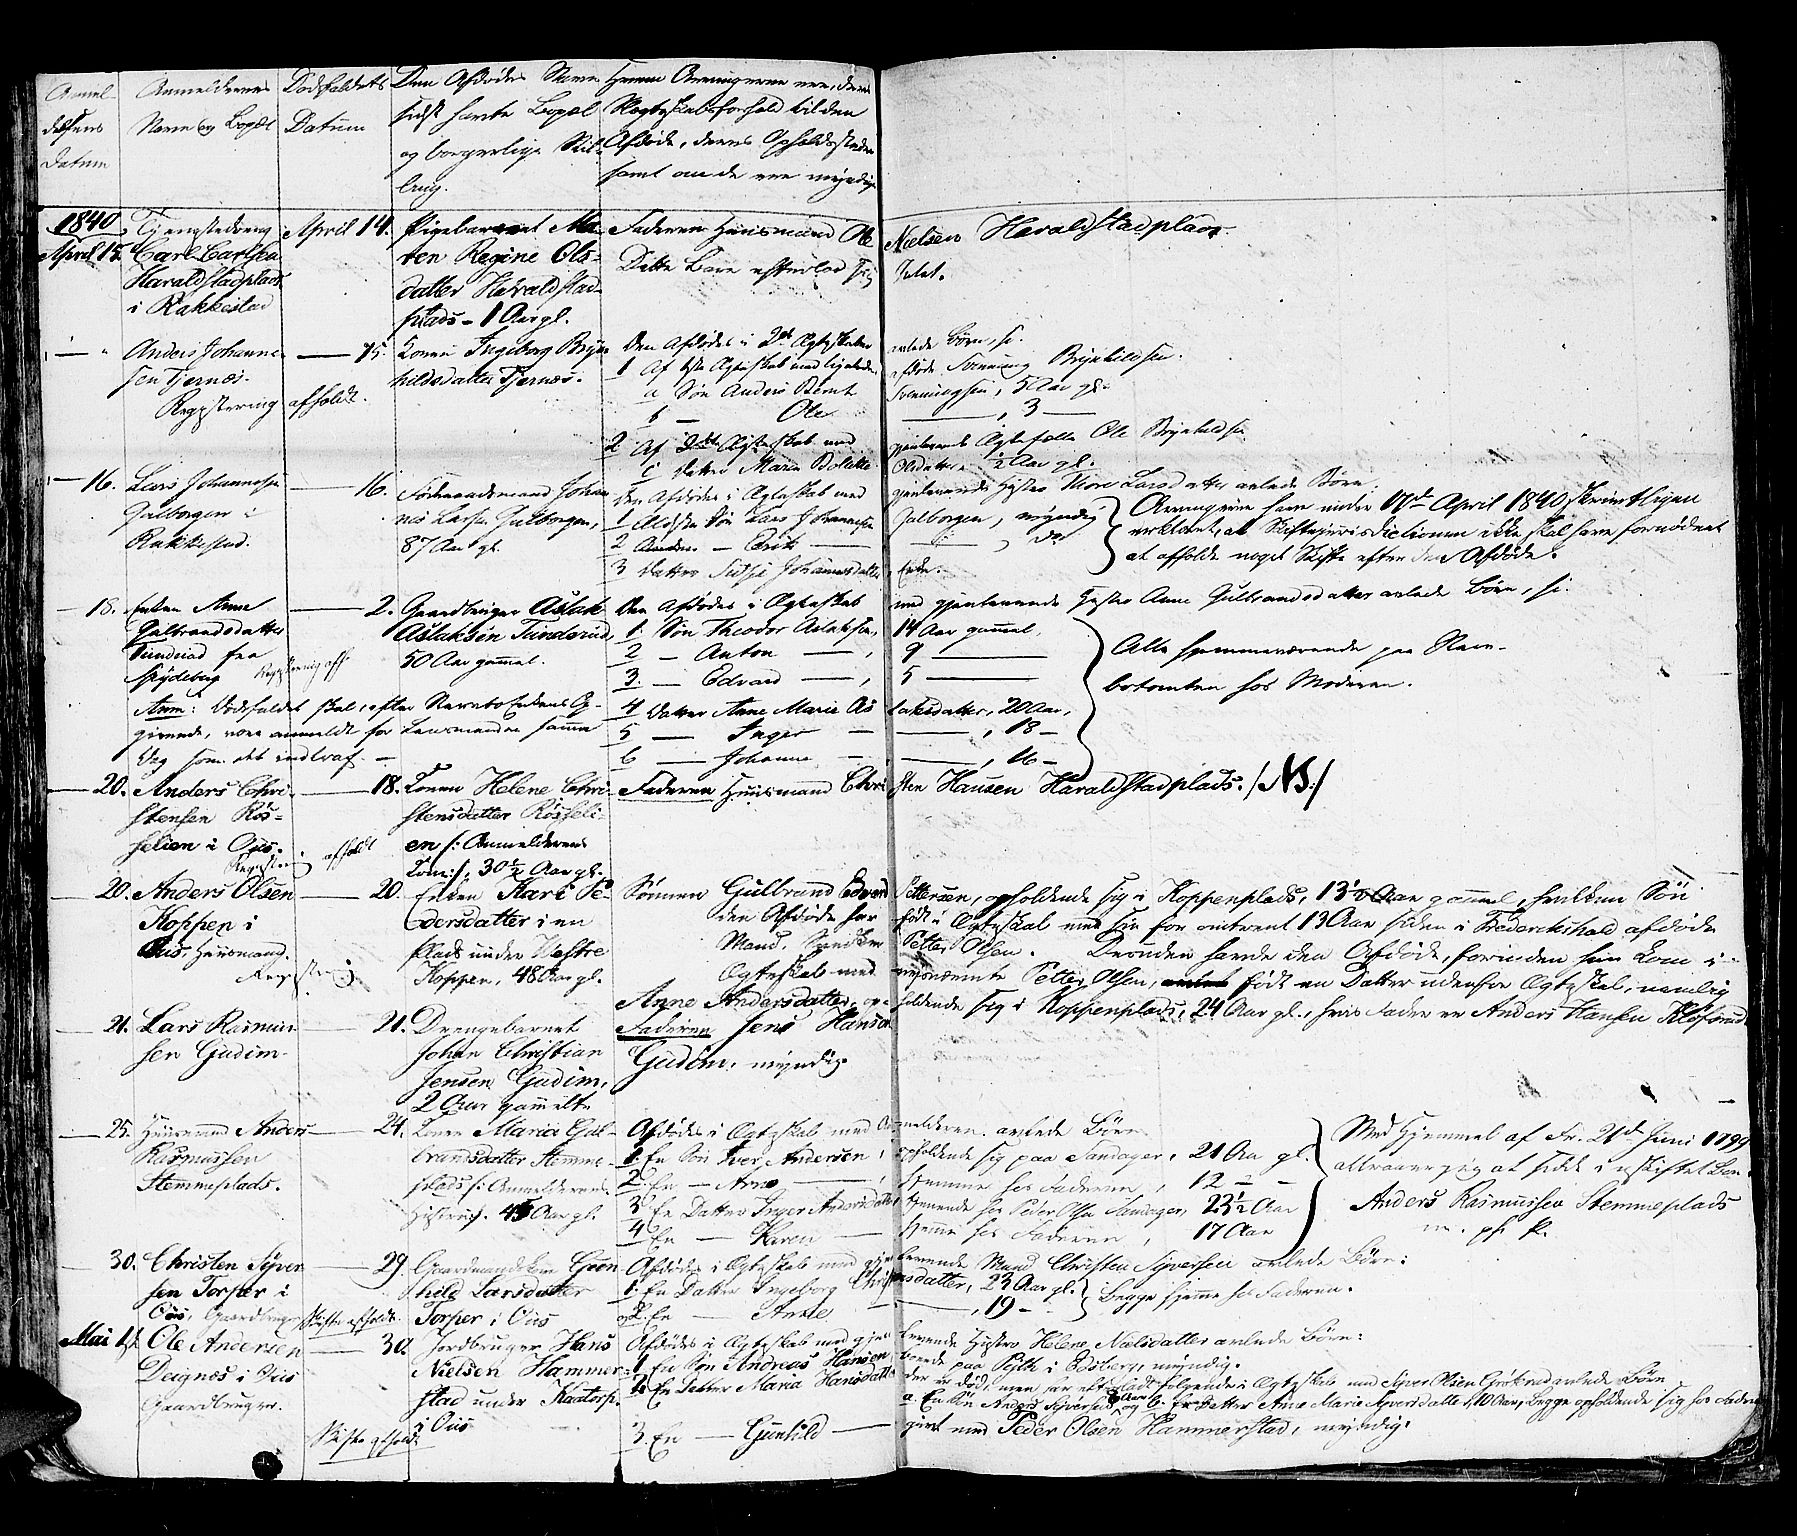 Anmel-
delsens
Datum
Anmelderens
Navn og Bopæl
Dødsfaldets
Datum
Den Afdødes Navn
sidst havte Bopæl
og borgerlige Stil-
ling.
Hvem Arvingerne ere, deres
Slægtskabsforhold til den
Afdøde, deres Opholdssteder
samt om de ere myndige
1840
April 15.
Carl Carlsen
Haraldstadplads
i Rakkestad
April 14.
Pigebarnet Ma-
ren Regine Ols-
datter Haraldstad-
plads - 1 Aar gl.
Faderen Huusmand Ole Nielsen Haraldstadplads.
Dette Barn efterlod sig Intet.
Anders Johanne-
sen Tjernæs.
Registrering afholdt.
15.
Konen Ingeborg Bryn-
hildsdatter Tjernæs.
Den Afdødes i 2de Ægteskaber avlede Børn, s:
1 Af 1ste Ægteskab med ligeledes afdøde Svenning Brynhildsen.
a Søn Anders Bernt Svenningsen, 5 Aar gl.
b — Ole —, 3 —
2 Af 2det Ægteskab med gjenlevende Ægtefælle Ole Brynhildsen
c Datter Maria Bolette Olsdatter ½ Aar gl.
16.
Lars Johannesen
Gulborgen i
Rakkestad.
16.
Johan-
nes Larsen Gulborgen,
87 Aar gl.
Den Afdødes i Ægteskab med gjenlevende Hustro Thore Larsdatter avlede Børn.
1 Ældste Søn Lars Johannesen Gulborgen, myndig
2 Anden — Erik — , do
3 Datter Sidsе Johannesdatter, Enke.
Arvingerne have under 17de April 1840 skrivtligen
erklæret, at Skiftejurisdictionen ikke skal have fornødent
at afholde noget Skifte efter den Afdøde.
18.
Enken Anne
Gulbrandsdatter
Tunderud fra
Spydeberg
Registrering afh.
2.
Gaardbruger Aslak
Aslaksen Tunderud,
50 Aar gammel.
Anm: Dødsfaldet skal, efter Enkens O-
givende, være anmeldt for Lensmanden samme
Dag som det indtraf. —
Den Afdødes i Ægteskab med gjenlevende Hustro Anne Gulbrandsdatter avlede Børn, s:
1. Søn Theodor Aslaksen, 14 Aar gammel,
2 — Anton —, 9 —
3. — Edvard —, 5 —
4 Datter Anne Marie Aslaksdatter, 20 Aar,
5 — Inger — —, 18 —
6 — Johanne — —, 16 —
Alle hjemmeværende paa
hos Moderen.
20.
Anders Chri-
stensen Rös-
selien i Öiis.
Registrering afholdt
18.
Konen Helene Chri-
stensdatter Rösseli-
en /: Anmelderens
Kone:/, 30½ Aar gl.
Faderen Huusmand Christen Hansen Haraldstadplads. /NB/
20.
Anders Olsen
Koppen i
Öiis, Huusmand.
Registrering
20.
Enken Kari Pe-
dersdatter i en
Plads under Vestre
Koppen, 48 Aar gl.
Sønnen Gulbrand Edvard Pettersen, opholdende sig i Koppenplads, 13½ Aar gammel, hvilken Søn
den Afdøde har født i Ægteskab med sin for omtrent 13 Aar siden i Frederikshald afdøde
Mand, Petter Olsen. Desuden havde den Afdøde, forinden hun kom i
Ægteskab med Petter Olsen, født en Datter udenfor Ægteskab, nemlig
Anne Andersdatter, opholdende sig i Koppenplads, 24 Aar gl., hvis Fader er Anders Hansen
21.
Lars Rasmus-
sen Gudim.
21.
Drengebarnet
Johan Christian
Jensen Gudim,
2 Aar gammelt.
Faderen Jens Hansen
Gudim, myndig.
25.
Huusmand Anders
Rasmussen
Stemmeplads.
24.
Konen Maria Gul-
brandsdatter Stemme-
plads /: Anmelderens
Hustro:/. 45 Aar gl.
Afdødes i Ægteskab med Anmelderen avlede Børn
1. En Søn Iver Andersen, opholdende sig paa Sandager, 21 Aar gl.
2. En — Arne —, hjemme hos Faderen, 12 — —
3 En Datter Inger Andersdatter, tjenende hos Peder Olsen Sandager, 23½ Aar
4 En — Karen — hjemme hos Faderen, 17 Aar
Med Hjemmel af Fr. 21de Juni 1799
at sidde i uskiftet Bo.
Anders Rasmussen Stemmeplads
m. p. P.
30.
Christen Syver-
sen Torper i
Öiis, Gaardbruger
Skifte afholdt.
29.
Gaardmandskone Gun-
hild Larsdatter
Torper i Öiis
Afdødes i Ægteskab med gjenlevende Mand Christen Syversen avlede Børn:
1. En Datter Ingeborg Christensdatter, 23 Aar gl.
og 2. En — Anne —, 19 —
begge hjemme hos Faderen.
Mai 1st
Ole Andersen
Deignæs i Öiis
Gaardbruger.
Skifte afholdt
30.
Jordbruger Hans
Nielsen Hammer-
stad under Kaatorp
i Öiis
Afdødes i Ægteskab med gjenlevende Hustro Helene Nielsdatter avlede Børn:
1. En Søn Andreas Hansen boende paa i Edsberg, myndig.
2. En Datter Maria Hansdatter der er død, men har efterladt følgende i Ægteskab med Syver Olsen avlede Børn
a. En Søn Anders Syversen og b. En Datter Anne Maria Syversdatter, 10 Aar, begge opholdende sig hos Faderen
3. En — Gunhild — givt med Peder Olsen Hammerstad, myndig.